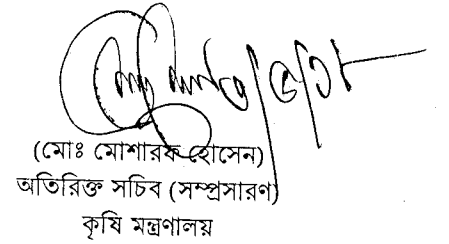 (মোঃ মোশারফ হোসেন)
অতিরিক্ত সচিব (সম্প্রসারণ)
কৃষি মন্ত্রণালয়